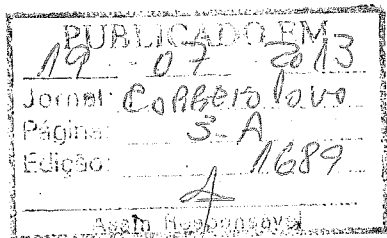 PUBLICADO EM
19 07 2013
Jornal: Correio do Povo
Página: 5-A
Edição: 1689
Assin Responsável